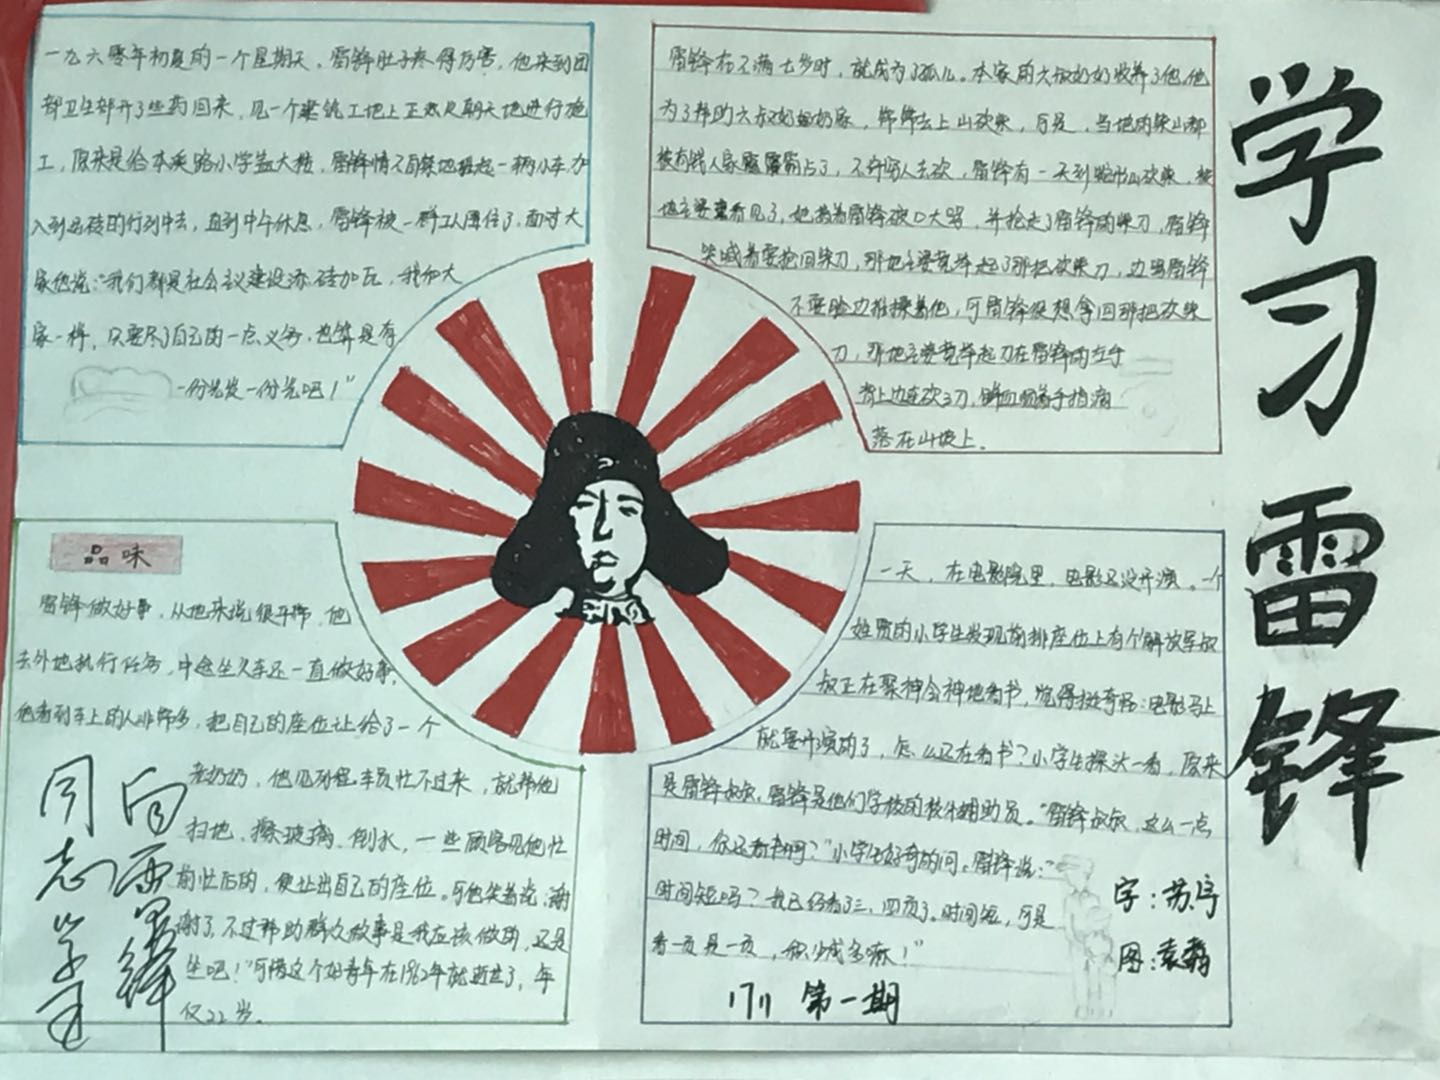 一九六零年初夏的一个星期天，雷锋肚子疼得厉害，他来到团
部卫生部开了些药回来，见一个建筑工地上正热火朝天地进行施
工，原来是给本溪路小学盖大楼，雷锋情不自禁地推起一辆小车，加
入到运砖的行列中去，直到中午休息，雷锋被一群工人围住了，面对大
家他说："我们都是社会主义建设添砖加瓦，我和大
家一样，只要尽了自己的一点义务，也算是有
一份光发一份光吧！"
雷锋在不满七岁时，就成为了孤儿。本家的六叔奶奶收养了他。他
为了帮助六叔奶奶家，常常去上山砍柴，可是，当地的柴山都
被有钱人家霸占了，不许穷人去砍，雷锋有一天到蛇形山砍柴，被
地主婆看见了，她指着雷锋破口大骂，并抢走了雷锋的柴刀，雷锋
哭喊着要抢回柴刀，那地主婆竟举起了那把砍柴刀，边骂雷锋
不要脸边推搡着他，可雷锋很想拿回那把砍柴
刀，那地主婆竟举起刀在雷锋的左手
背上边连砍三刀，鲜血顺着手指滴
落在山坡上。
学习雷锋
品味
雷锋做好事，从他来说很平常，他
去外地执行任务，中途坐火车还一直做好事，
他看到车上的人非常多，把自己的座位让给了一个
老奶奶，他见列程车员忙不过来，就帮他
扫地、擦玻璃、倒水，一些顾客见他忙
前忙后的，便让出自己的座位。可他笑着说：谢
谢了，不过帮助群众做事是我应该做的，还是
坐吧！"可惜这个好青年在1962年就逝去了，年
仅22岁。
向雷锋
同志学习
一天，在电影院里，电影还没开演。一个
姓贾的小学生发现前排座位上有个解放军叔
叔正在聚精会神地看书，觉得挺奇怪：电影马上
就要开演的了，怎么还在看书？小学生探头一看，原来
是雷锋叔叔，雷锋是他们学校的校外辅助员。"雷锋叔叔，这么一点
时间，你还看书啊？"小学生好奇的问。雷锋说："
时间短吗？我已经看了三、四页了。时间短，可是
看一页是一页，积少成多嘛！"
字：苏宁
图：袁
1711 第一期